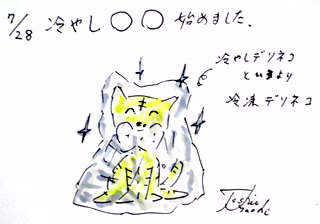 7/28 冷やし○○始めました.
冷やしデリネコ
というより
冷凍デリネコ